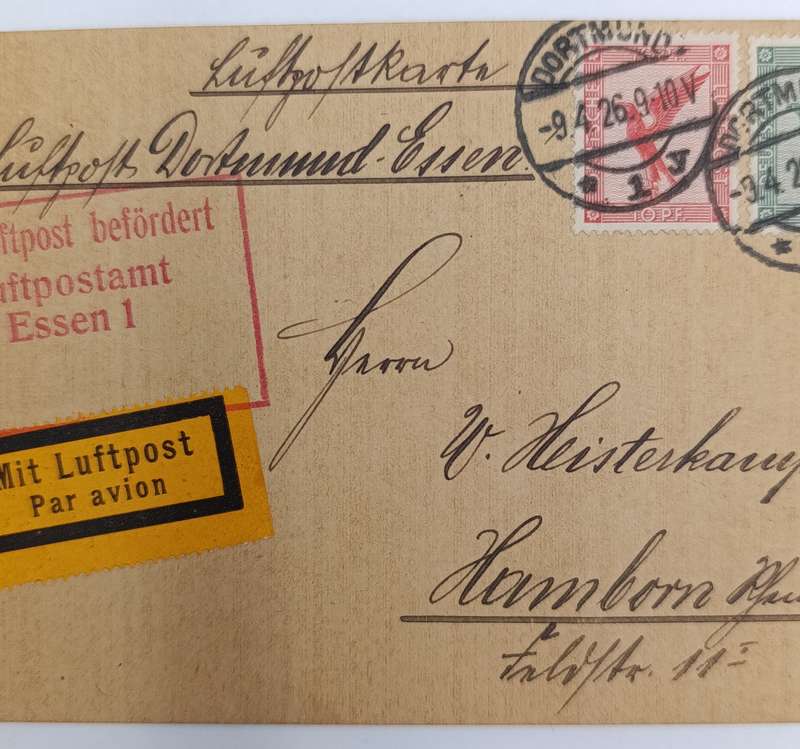 Luftpostkarte
Luftpost Dortmund-Essen.
DORTMUND
-9.4.26.9-10V
* 1 y
10 PF
DORTMU
-9.4.2
*
ftpost befördert
uftpostamt
Essen 1
Herrn
W. Heisterkamp
Mit Luftpost
Par avion
Hamborn Rhein
Feldstr. 11